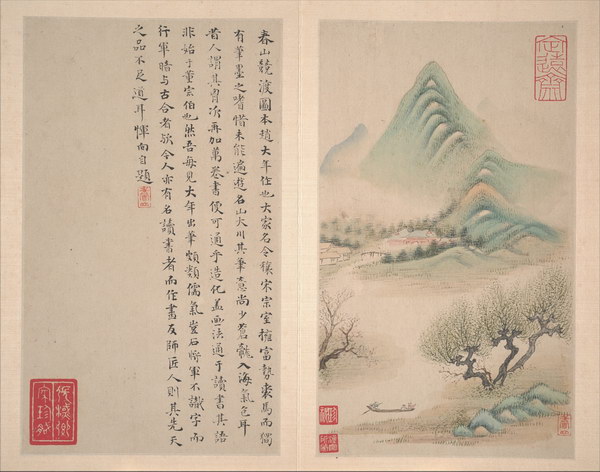 春山競渡圖本趙大年作也大家名令穰宋宗室擅富勢裘馬而獨
有筆墨之嗜惜未能遍遊名山大川其筆意尚少蒼龍入海氣色耳
昔人謂其胷次再加萬卷書便可通乎造化盖畫法通于讀書其語
非始于董宗伯也然吾每見大年出筆頗類儒氣豈右將軍不識字而
行軍暗与古合者歟今人亦有名讀書者而作畫友師匠人則其先天
之品不足道耳惲向自題
定遠齋